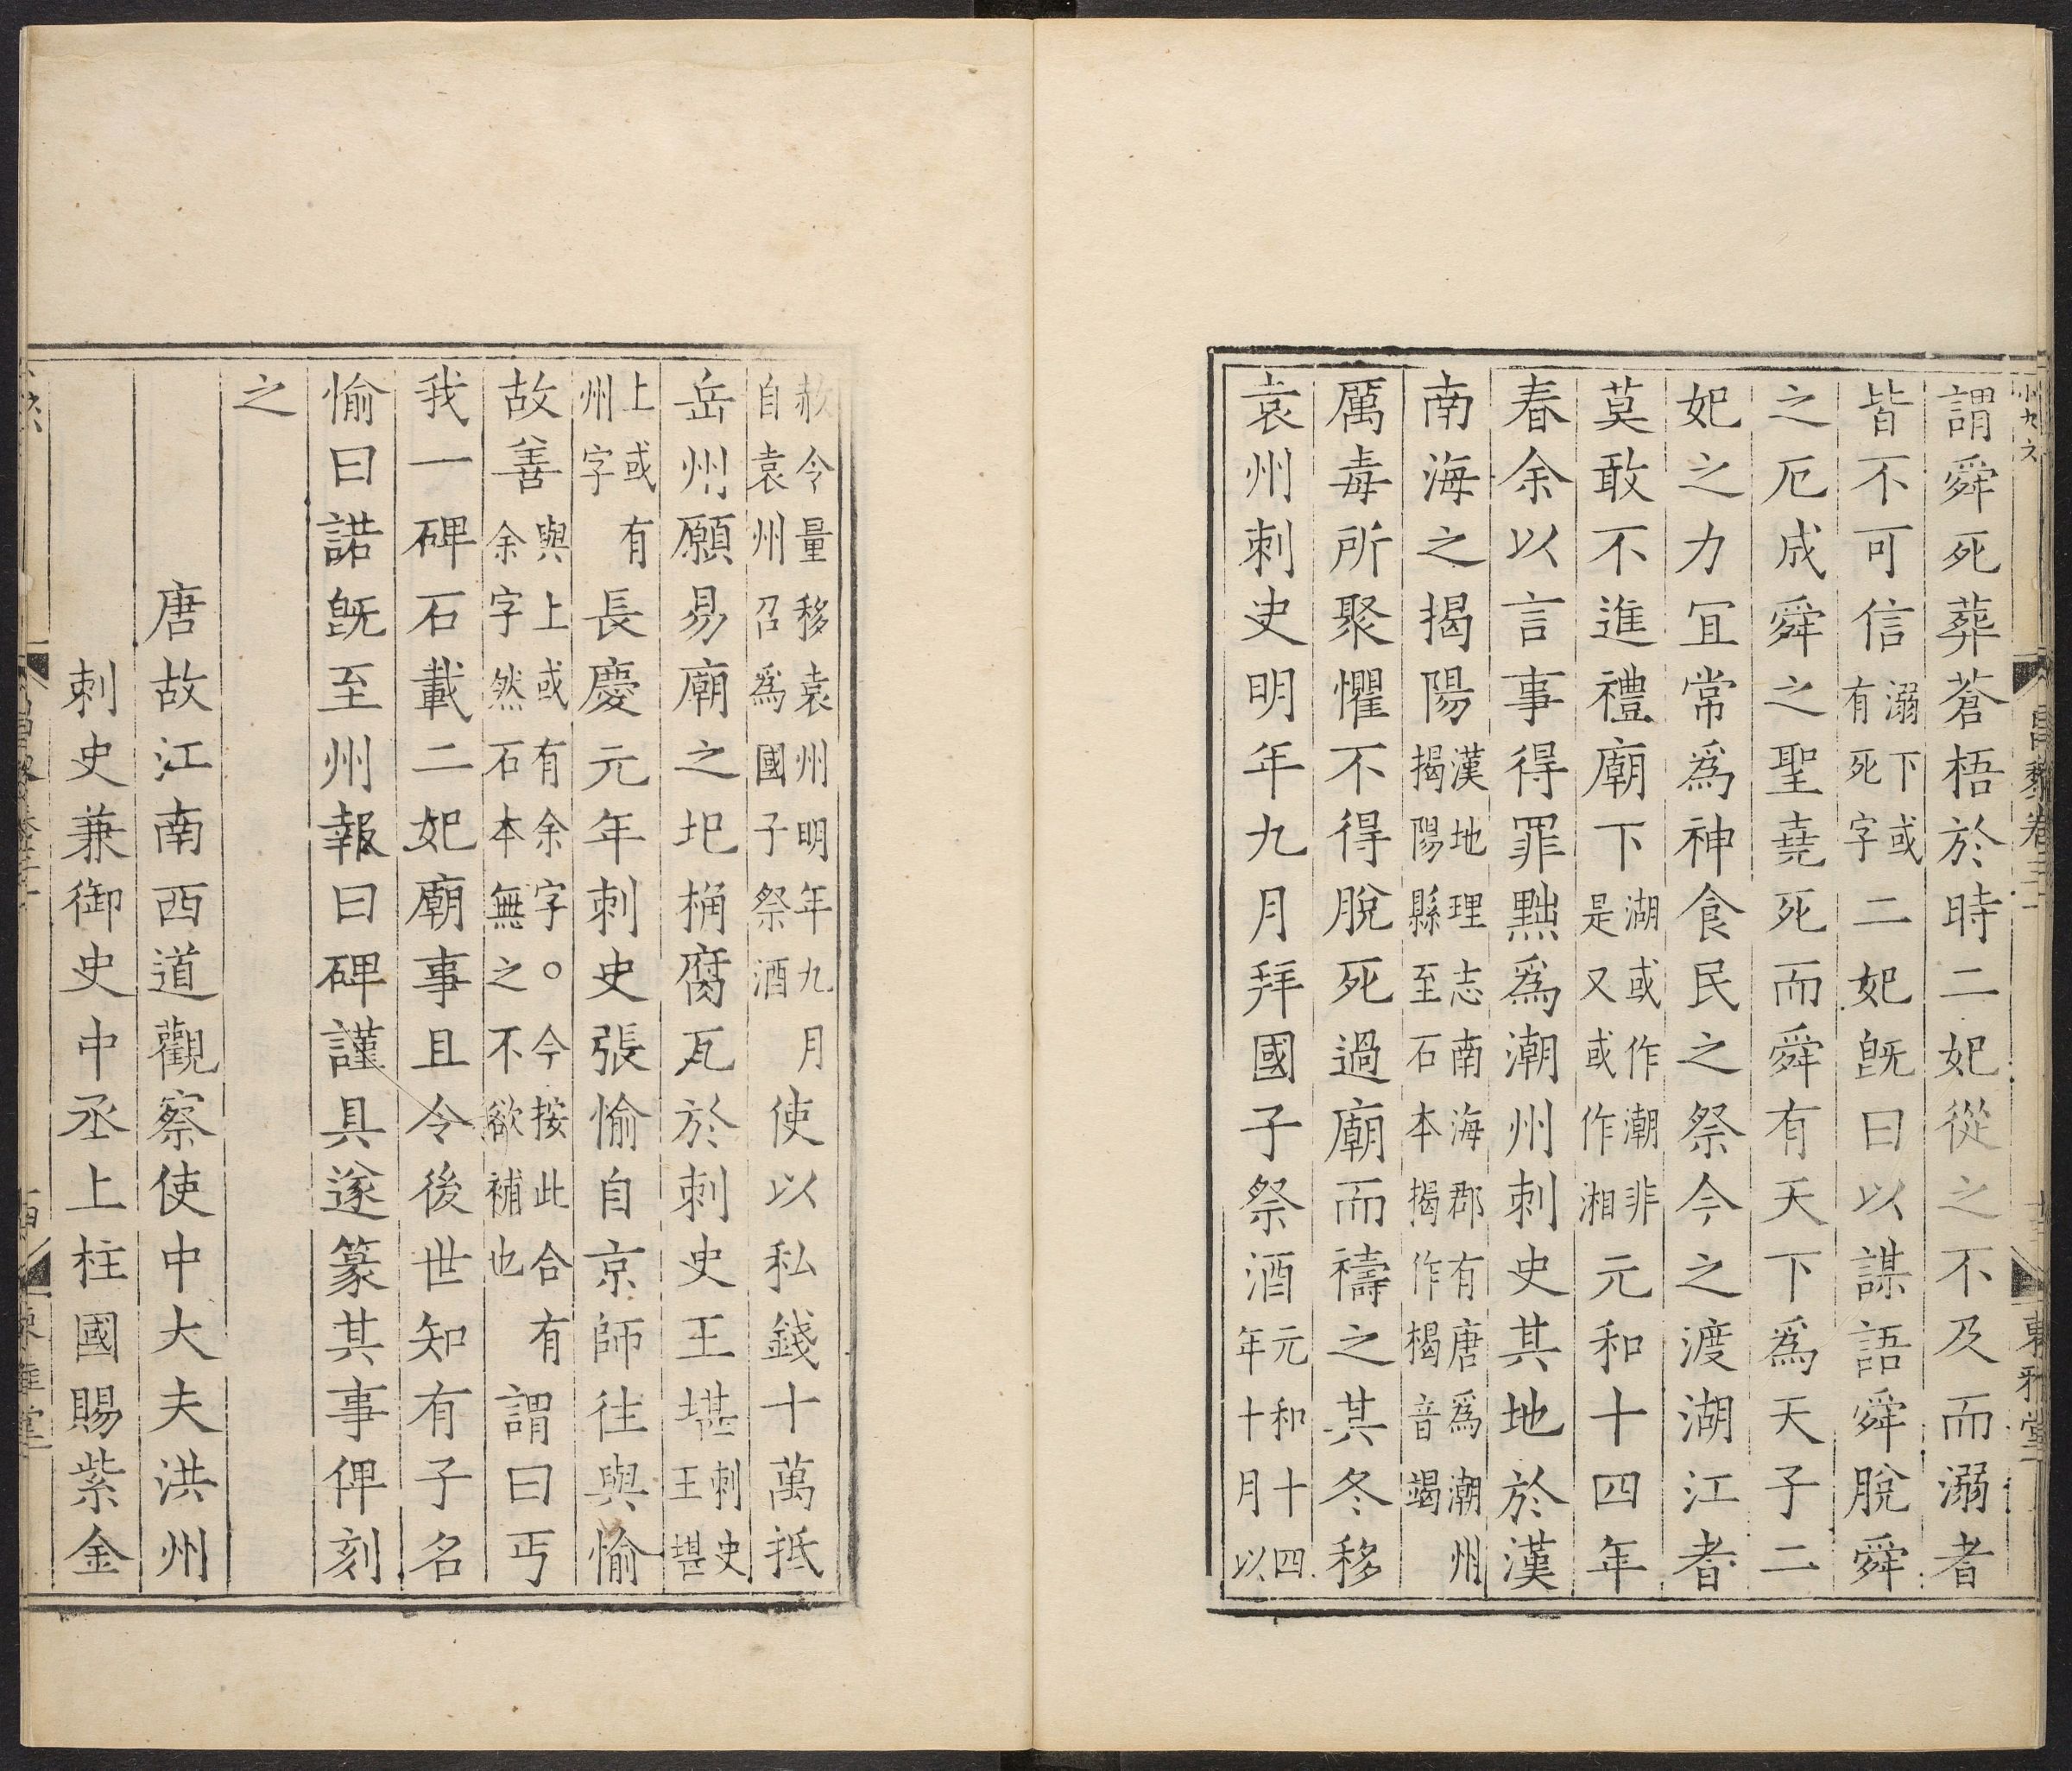 謂舜死葬蒼梧於時二妃從之不及而溺者
皆不可信溺下或有死字二妃旣曰以謀語舜脫舜
之厄成舜之聖堯死而舜有天下爲天子二
妃之力宜常爲神食民之祭今之渡湖江者
莫敢不進禮廟下湖或作潮非是又或作湘元和十四年
春余以言事得罪黜爲潮州刺史其地於漢
南海之揭陽漢地理志南海郡有揭陽縣至石本揭作楬音竭唐爲潮州
厲毒所聚懼不得脫死過廟而禱之其冬移
袁州刺史明年九月拜國子祭酒元和十四年十月以
赦令量移袁州明年九月自袁州召爲國子祭酒使以私錢十萬抵
岳州願易廟之圯桷腐瓦於刺史王堪刺史王堪
上或有州字長慶元年刺史張愉自京師往與愉
故善與上或有余字。今按此合有余字然石本無之不欲補也謂曰丐
我一碑石載二妃廟事且令後世知有子名
愉曰諾旣至州報曰碑謹具遂篆其事俾刻
之
唐故江南西道觀察使中大夫洪州
刺史兼御史中丞上柱國賜紫金